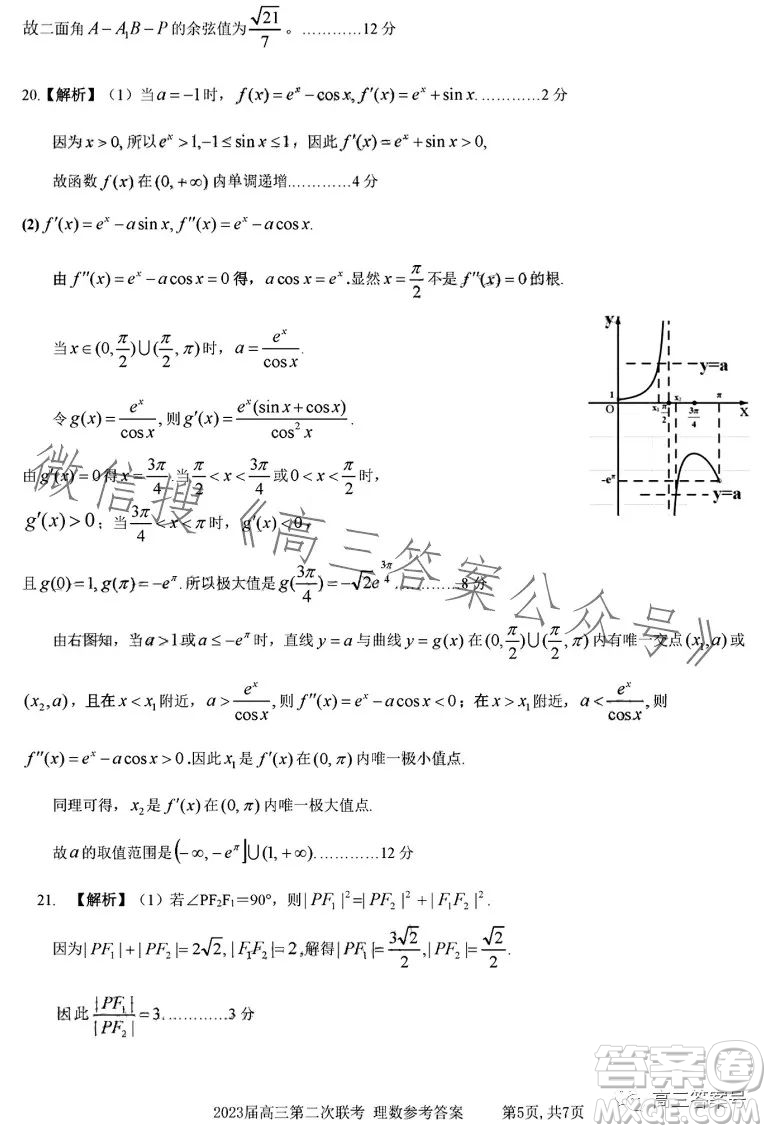 故二面角 A－A₁B－P 的余弦值为 √21/7 。…………12 分
20.【解析】（1）当 a＝−1 时，f(x)＝eˣ−cos x, f′(x)＝eˣ+sin x.…………2 分
因为 x＞0, 所以 eˣ＞1,−1≤sin x≤1，因此 f′(x)＝eˣ+sin x＞0,
故函数 f(x) 在 (0,+∞) 内单调递增.…………4 分
(2) f′(x)＝eˣ−a sin x, f″(x)＝eˣ−a cos x.
由 f″(x)＝eˣ−a cos x＝0 得，a cos x＝eˣ.显然 x＝π/2 不是 f″(x)＝0 的根.
当 x∈(0,π/2)∪(π/2,π) 时，a＝eˣ/cos x.
令 g(x)＝eˣ/cos x, 则 g′(x)＝eˣ(sin x+cos x)/cos² x.
由 g′(x)＝0 得 x＝3π/4.当 π/2＜x＜3π/4 或 0＜x＜π/2 时，
g′(x)＞0；当 3π/4＜x＜π 时，g′(x)＜0，
且 g(0)＝1, g(π)＝−e^π.所以极大值是 g(3π/4)＝−√2e^(3π/4)…………8 分
y
y=a
1
O
x₁
π/2
x₂
3π/4
π
x
−e^π
y=a
由右图知，当 a＞1 或 a≤−e^π 时，直线 y＝a 与曲线 y＝g(x) 在 (0,π/2)∪(π/2,π) 内有唯一交点 (x₁,a) 或
(x₂,a)，且在 x＜x₁ 附近，a＞eˣ/cos x, 则 f″(x)＝eˣ−a cos x＜0；在 x＞x₁ 附近，a＜eˣ/cos x, 则
f″(x)＝eˣ−a cos x＞0.因此 x₁ 是 f′(x) 在 (0,π) 内唯一极小值点.
同理可得，x₂ 是 f′(x) 在 (0,π) 内唯一极大值点.
故 a 的取值范围是 (−∞,−e^π]∪(1,+∞).…………12 分
21. 【解析】（1）若∠PF₂F₁＝90°，则 |PF₁|²＝|PF₂|²+|F₁F₂|².
因为 |PF₁|+|PF₂|＝2√2, |F₁F₂|＝2, 解得 |PF₁|＝3√2/2, |PF₂|＝√2/2.
因此 |PF₁|/|PF₂|＝3.…………3 分
2023届高三第二次联考 理数参考答案 第5页, 共7页
微信搜《高三答案公众号》
答案卷
高三答案号
MXQE.COM